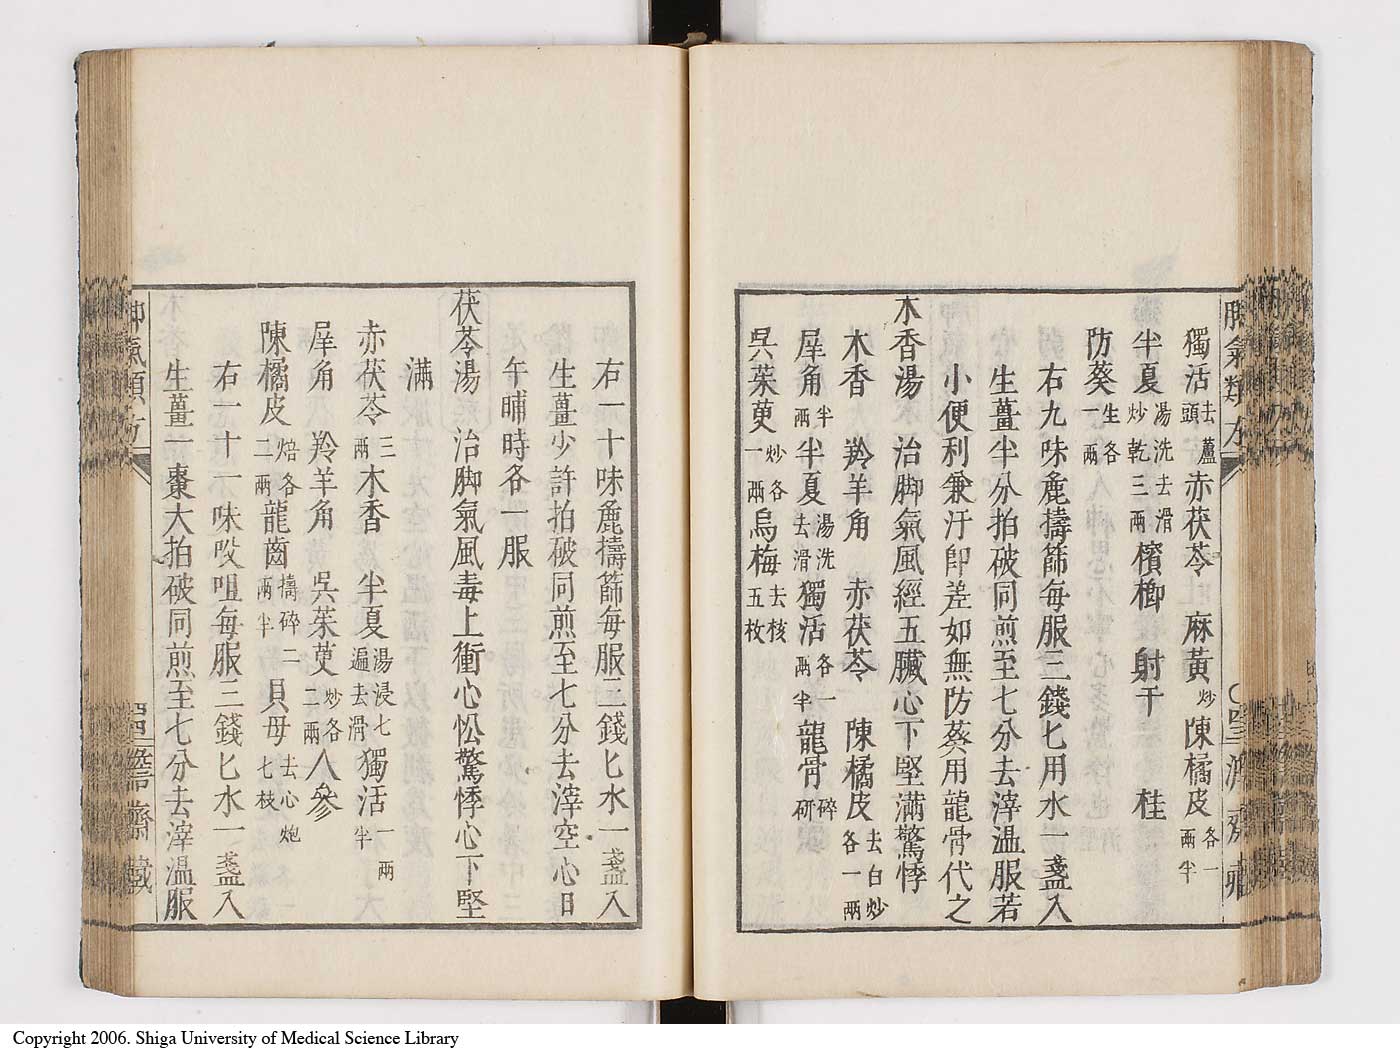 獨活去蘆頭赤茯苓 麻黃炒陳橘皮各一兩半
半夏湯洗去滑炒乾三兩檳榔 射干 桂
防葵生各一兩
右九味麄擣篩每服三錢匕用水一盞入
生薑半分拍破同煎至七分去滓温服若
小便利兼汗卽差如無防葵用龍骨代之
木香湯 治脚氣風經五臟心下堅滿驚悸
木香 羚羊角 赤茯苓 陳橘皮去白炒各一兩
犀角半兩半夏湯洗去滑獨活各一兩半龍骨碎研
吳茱萸炒各一兩烏梅去核五枚
右一十味麄擣篩每服三錢匕水一盞入
生薑少許拍破同煎至七分去滓空心日
午晡時各一服
茯苓湯 治脚氣風毒上衝心忪驚悸心下堅
滿
赤茯苓三兩木香 半夏湯浸七遍去滑獨活一兩半
犀角 羚羊角 吳茱萸炒各二兩人參
陳橘皮焙各二兩龍齒擣碎二兩半貝母去心炮七枝
右一十一味㕮咀每服三錢匕水一盞入
生薑一棗大拍破同煎至七分去滓温服
脚氣類方
Copyright 2006. Shiga University of Medical Science Library